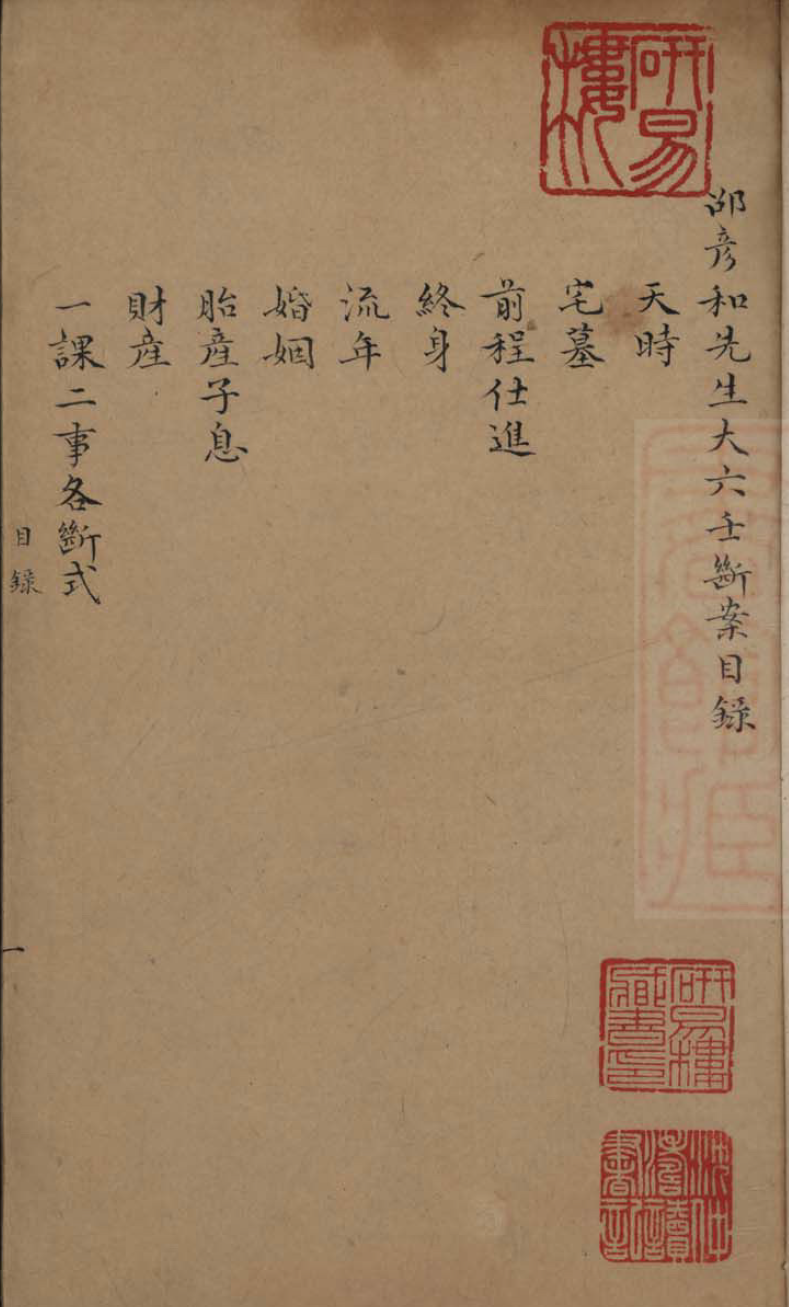 邵彦和先生大六壬斷案目録
天時
宅墓
前程仕進
終身
流年
婚姻
胎産子息
財産
一課二事各斷式
目録
一
研易樓
研易樓藏書印